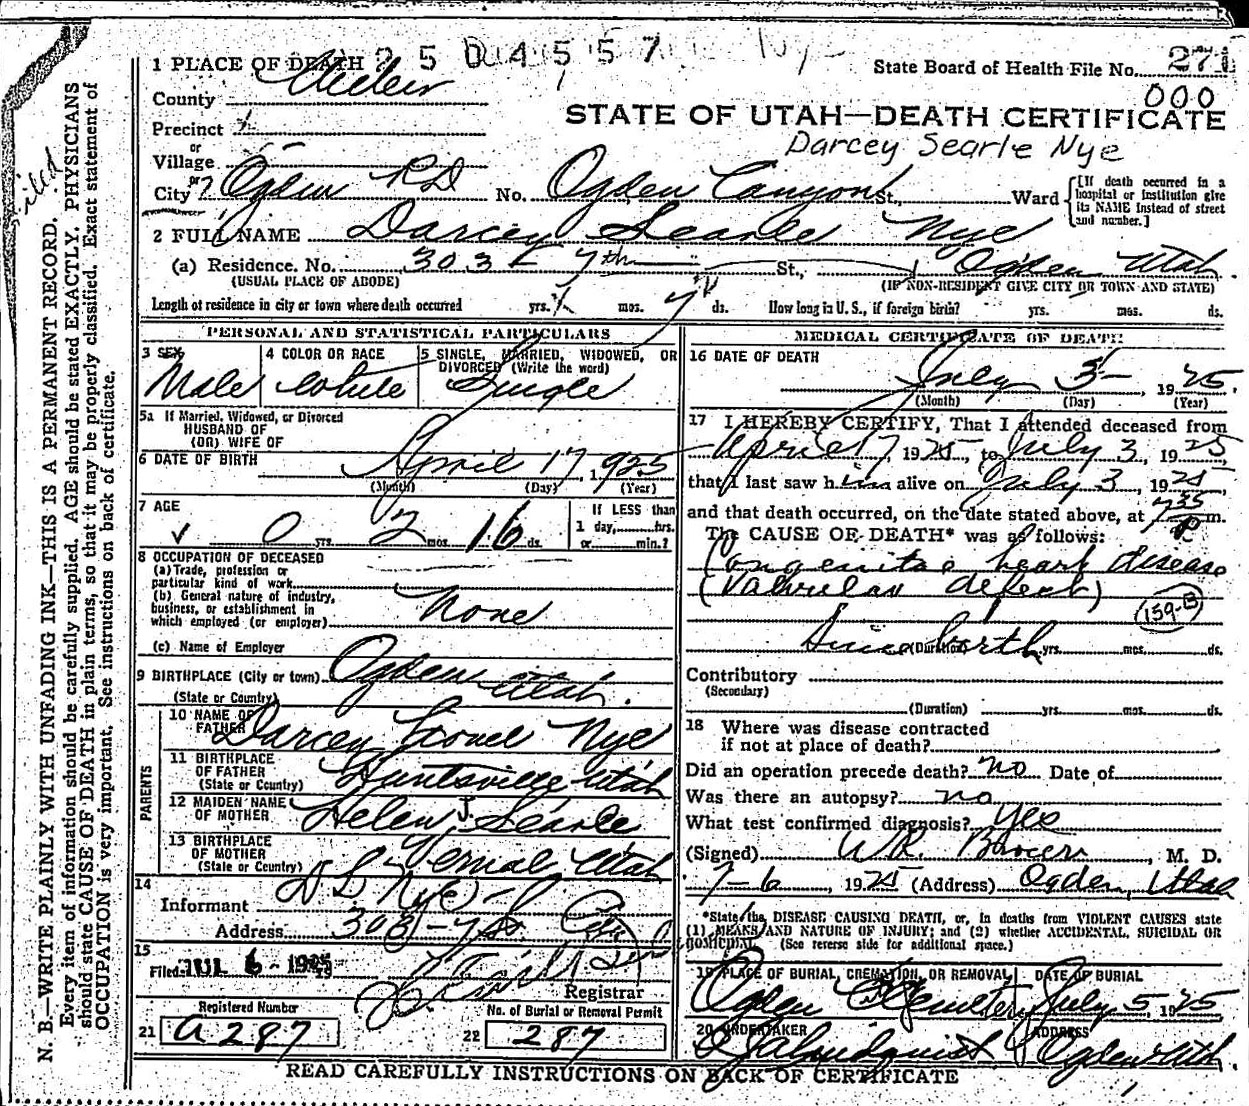 1 PLACE OF DEATH 2 5 0 4 5 5 7
State Board of Health File No. 271
000
County Weber
STATE OF UTAH—DEATH CERTIFICATE
Precinct
Darcey Searle Nye
or
Village
or
City Ogden RD No. Ogden Canyon St., Ward
[If death occurred in a hospital or institution give its NAME instead of street and number.]
2 FULL NAME Darcey Searle Nye
(a) Residence. No. 303 - 7th St., Ogden Utah.
(USUAL PLACE OF ABODE) (IF NON-RESIDENT GIVE CITY OR TOWN AND STATE)
Length of residence in city or town where death occurred yrs. mos. ds. How long in U. S., if foreign birth? yrs. mos. ds.
PERSONAL AND STATISTICAL PARTICULARS
3 SEX Male
4 COLOR OR RACE White
5 SINGLE, MARRIED, WIDOWED, OR DIVORCED (Write the word) Single
5a If Married, Widowed, or Divorced
HUSBAND OF
(OR) WIFE OF
6 DATE OF BIRTH April 17, 1925
(Month) (Day) (Year)
7 AGE 0 yrs. 2 mos. 16 ds.
If LESS than
1 day, hrs.
or min.?
8 OCCUPATION OF DECEASED
(a) Trade, profession or
particular kind of work
(b) General nature of industry,
business, or establishment in
which employed (or employer) None
(c) Name of Employer
9 BIRTHPLACE (City or town) Ogden Utah.
(State or Country)
PARENTS
10 NAME OF FATHER Darcey Lionel Nye
11 BIRTHPLACE OF FATHER (State or Country) Huntsville Utah
12 MAIDEN NAME OF MOTHER Helen J. Searle
13 BIRTHPLACE OF MOTHER (State or Country) Vernal Utah
14
Informant D L Nye
Address 303 - 7 St. City
15
Filed JUL 6 - 1925
Registrar
Registered Number
21 a 287
No. of Burial or Removal Permit
22 287
MEDICAL CERTIFICATE OF DEATH
16 DATE OF DEATH
July 3 - , 1925
(Month) (Day) (Year)
17 I HEREBY CERTIFY, That I attended deceased from
April 17, 1925, to July 3, 1925,
that I last saw him alive on July 3, 1925,
and that death occurred, on the date stated above, at 7 35 P m.
The CAUSE OF DEATH* was as follows:
Congenital heart disease
(Valvular defect)
159-B
Since birth
(Duration) yrs. mos. ds.
Contributory
(Secondary)
(Duration) yrs. mos. ds.
18 Where was disease contracted
if not at place of death?
Did an operation precede death? no Date of
Was there an autopsy? no
What test confirmed diagnosis? yes
(Signed) W.R. , M. D.
7-6, 1925 (Address) Ogden, Utah
*State the DISEASE CAUSING DEATH, or, in deaths from VIOLENT CAUSES state
(1) MEANS AND NATURE OF INJURY; and (2) whether ACCIDENTAL, SUICIDAL OR
HOMICIDAL. (See reverse side for additional space.)
19 PLACE OF BURIAL, CREMATION, OR REMOVAL DATE OF BURIAL
Ogden City Cemetery July 5, 1925
20 UNDERTAKER ADDRESS
Lindquist Ogden Utah.
READ CAREFULLY INSTRUCTIONS ON BACK OF CERTIFICATE
N. B.—WRITE PLAINLY WITH UNFADING INK—THIS IS A PERMANENT RECORD.
Every item of information should be carefully supplied. AGE should be stated EXACTLY. PHYSICIANS
should state CAUSE OF DEATH in plain terms, so that it may be properly classified. Exact statement of
OCCUPATION is very important. See instructions on back of certificate.